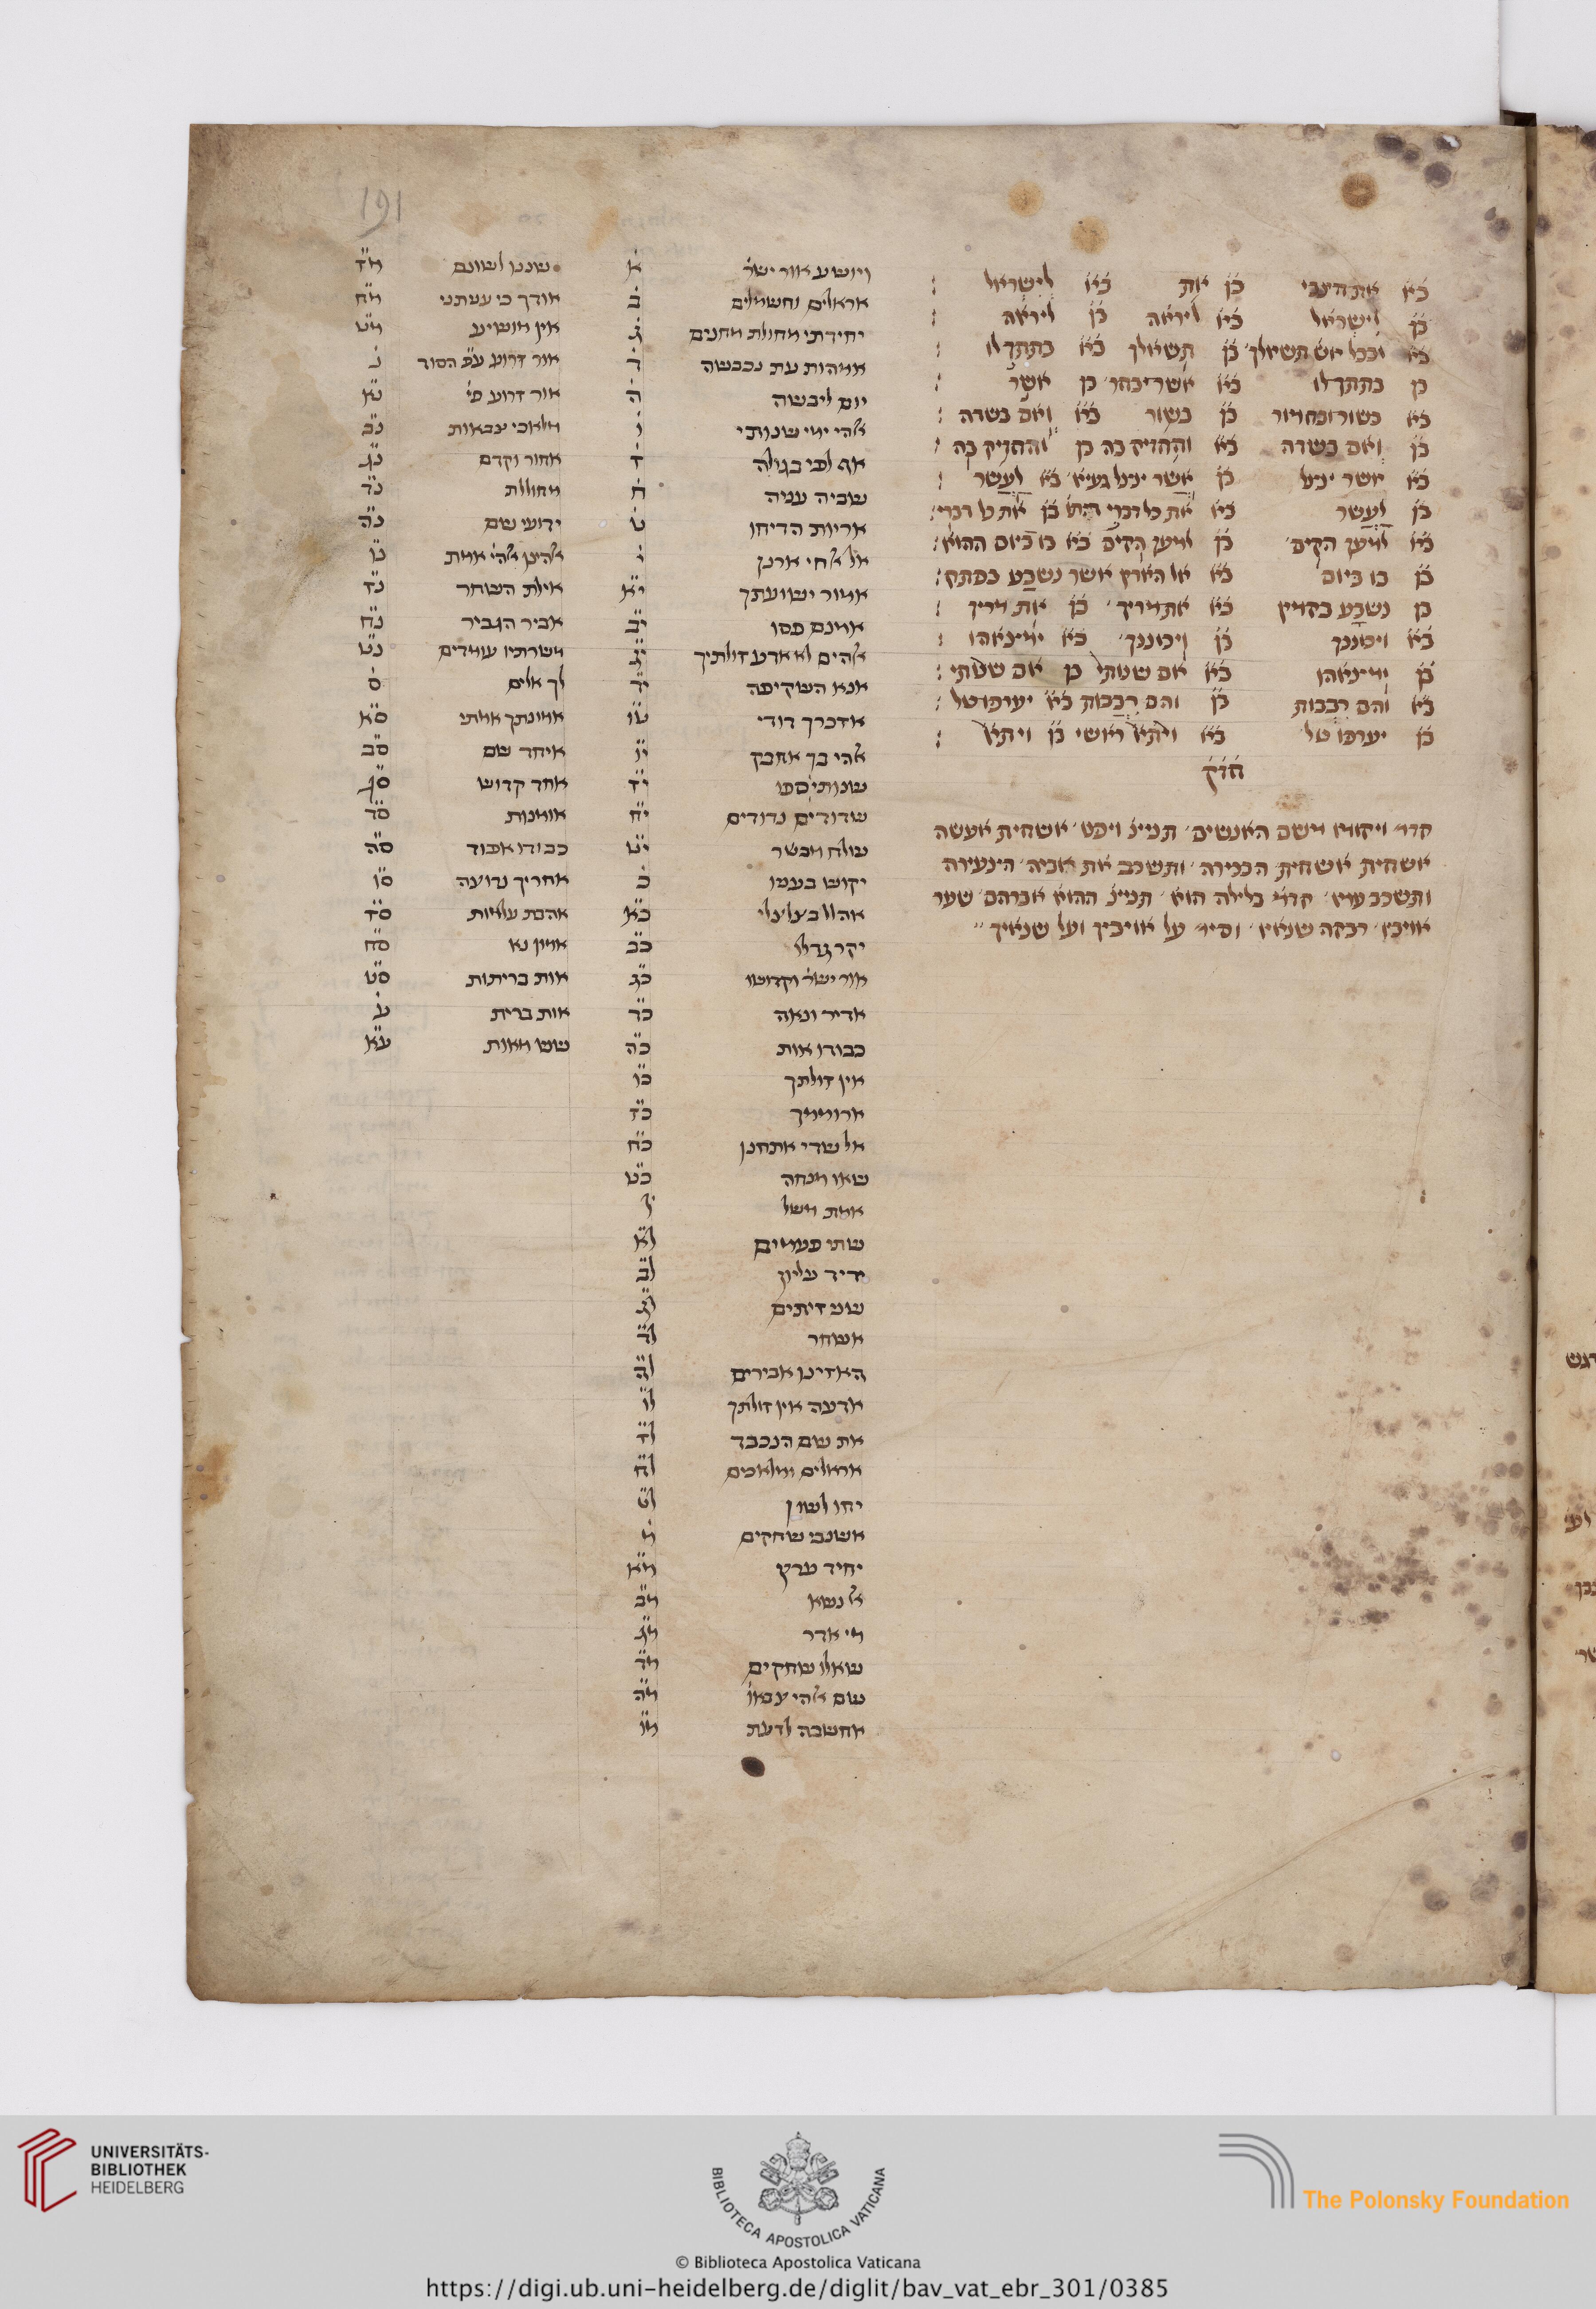 191
בא את הינבי בן את בא לישראל :
בן לישראל בא ליראה בן ליראה :
בא ובכל אשר תשאלך בן תשאלך בא בתתך לו :
בן בתתך לו בא אשר יבחר בן אשר :
בא בשור ובחמור בן בשור בא ואם בשדה :
בן ואם בשדה בא והחזיק בה בן והחזיק בה
בא אשר יכול בן אשר יכול געיא בא לעשר :
בן לעשר בא את כל דברי בן את כל דברי :
בא למען הקים בן למען הקים בא בו ביום ההוא :
בן בו ביום בא אל הארץ אשר נשבע בפתח :
בן נשבע בקמץ בא את בן את :
בא ויכוננך בן ויכוננך בא ימצאהו :
בן ימצאהו בא אם שנותי בן אם שנותי :
בא והם רבבות בן והם רבבות בא יערפו טל :
בן יערפו טל בא ויתא ראשי בן ויתא :
חזק
קדמ ויקומו משם האנשים תניינ ויפנו אשחית אעשה
אשחית אשחית הבכירה ותשכב את אביה הצעירה
ותשכב עמו קדמ בלילה הוא תניינ ההוא אברהם שער
אויביו רבקה שנאיו וסימ על אויביך ועל שנאיך
ויושע אור ישר א
אראלים וחשמלים ב
יחידתי מחולת מחנים ג
אמהות עת נכבשה ד
יום ליבשה ה
אלהי ימי שנותי ו
אף לפי בגולה ז
שביה עניה ח
אריות הדיחו ט
אל אל חי ארנן י
אמור ישועתך יא
אמנם פסו יב
אלהים לא אדע זולתיך יג
אנא השקיפה יד
אזכרך דודי טו
אלהי בך אחבק יו
שנותי ספו יז
שדודים נדודים יח
שולח מבשר יט
יקוש בעניו כ
אהלל בצלצלי כא
יקר גדל כב
אור ישר וקדושו כג
אדיר ונאה כד
כבודו אות כה
אין זולתך כו
ארוממך כז
אל שדי אתחנן כח
שאו מנחה כט
אמת משל ל
שתי פעמים לא
ידיד עליון לב
שני זיתים לג
אשחר לד
האזינו אבירים לה
אדעה אין זולתך לו
את שם הנכבד לז
אראלים ומלאכים לח
יחו לשון לט
אשנבי שחקים מ
יחיד ערץ מא
אל נשא מב
מי אדר מג
שאלו שחקים מד
שם אלהי צבאו מה
אחשבה לדעת מו
שננו לשונם מז
אודך כי עניתני מח
אין מושיע מט
אור זרוע עפ הסוד נ
אור זרוע פי נא
מלאכי צבאות נב
אחור וקדם נג
מחוללת נד
ידועי שם נה
אלהיכן אלהי אמת נו
אילת השחר נז
אביר הגביר נח
משרתיו עומדים נט
לך אלים ס
אמונתך אמתי סא
איחד שם סב
אחד קדוש סג
אומנות סד
כבודו אכוד סה
אחריך נרוצה סו
אהבת עלמות סז
אמון נא סח
אות בריתות סט
אות ברית ע
שש מאות עא
UNIVERSITÄTS-
BIBLIOTHEK
HEIDELBERG
BIBLIOTECA APOSTOLICA VATICANA
The Polonsky Foundation
© Biblioteca Apostolica Vaticana
https://digi.ub.uni-heidelberg.de/diglit/bav_vat_ebr_301/0385